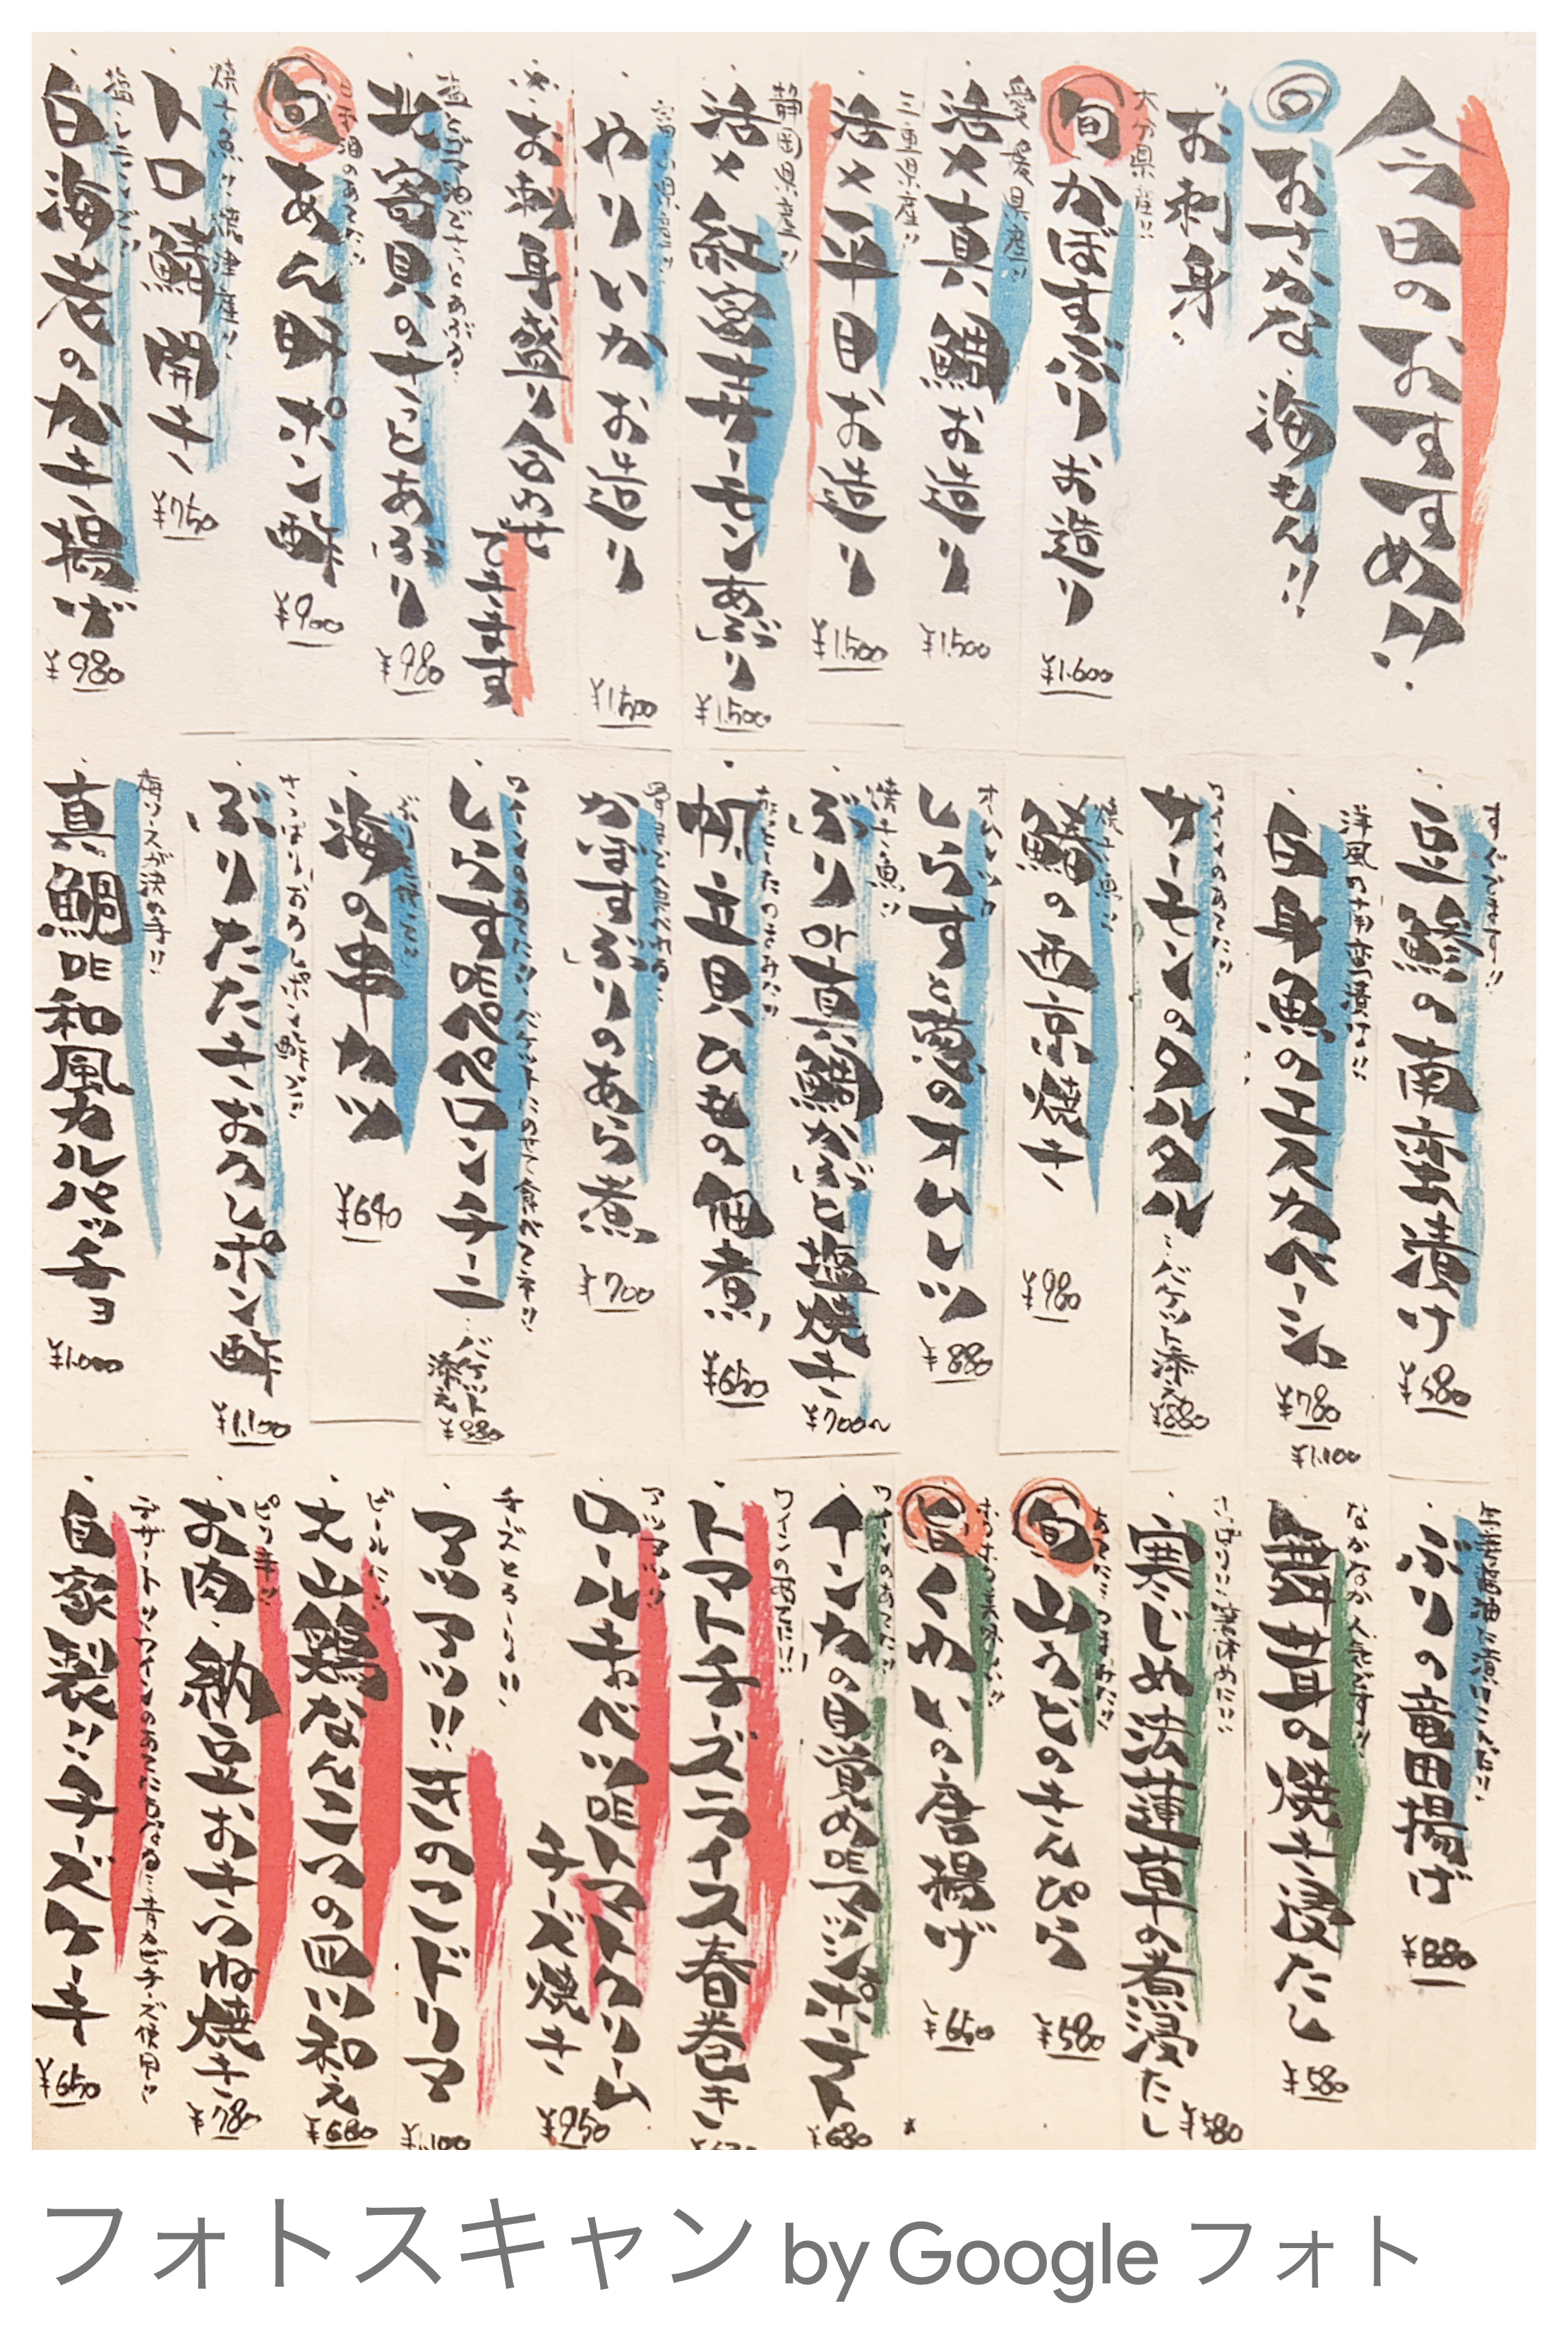 今日のおすすめ!!
おさかな海もん!!
お刺身
大分県産!!
旬 かぼすぶりお造り
¥1,600
愛媛県産!!
活〆真鯛お造り
¥1,500
三重県産!!
活〆平目お造り
¥1,500
静岡県産!!
活〆紅富士サーモンあぶり
¥1,500
やりいかお造り
¥1,500
お刺身盛り合わせ
できます
塩とゴマ油でさっとあぶる
北寄貝のさっとあぶり
¥980
旬 あん肝ポン酢
¥900
焼き魚!!焼津産!!
トロ鯖開き
¥750
塩レモンで!!
白海老のかき揚げ
¥980
すぐでます!!
豆鯵の南蛮漬け
¥580
洋風の南蛮漬け!!
白身魚のエスカベーシュ
¥780
ワインのあてに!!
サーモンのタルタル
…バケット添え
¥880
焼き魚!!
鰆の西京焼き
¥980
オムレツ!!
しらすと葱のオムレツ
¥880
焼き魚!!
ぶりor真鯛かぶと塩焼き
¥700〜
帆立貝ひもの佃煮
¥650
かぼすぶりのあら煮
¥700
ワインのあてに!!バケットにのせて食べてネ!!
しらすDEペペロンチーニ
…バケット添え
¥880
海の串カツ
¥640
さっぱりおろしポン酢で!!
ぶりたたきおろしポン酢
¥1,100
梅ソースが決め手!!
真鯛DE和風カルパッチョ
¥1,000
ぶりの竜田揚げ
¥880
¥1,100
なかなか人気です!!
舞茸の焼き浸たし
¥580
寒じめ法蓮草の煮浸たし
¥580
旬 山うどのきんぴら
¥580
旬 くわいの唐揚げ
¥650
ワインのあてに!!
インカの目覚めDEアンシポテト
¥680
ワインのあてに!!
トマトチーズライス春巻き
アツアツ!!
ロールキャベツDEトマトクリーム
チーズ焼き
¥950
チーズとろ〜り!!
アツアツ!!きのこドリア
¥1,100
ビールに!!
大山鶏なんこつの四川和え
¥680
ピリ辛!!
お肉・納豆おきつね焼き
¥780
デザート!!ワインのあてにも
自家製!!チーズケーキ
¥650
フォトスキャン by Google フォト